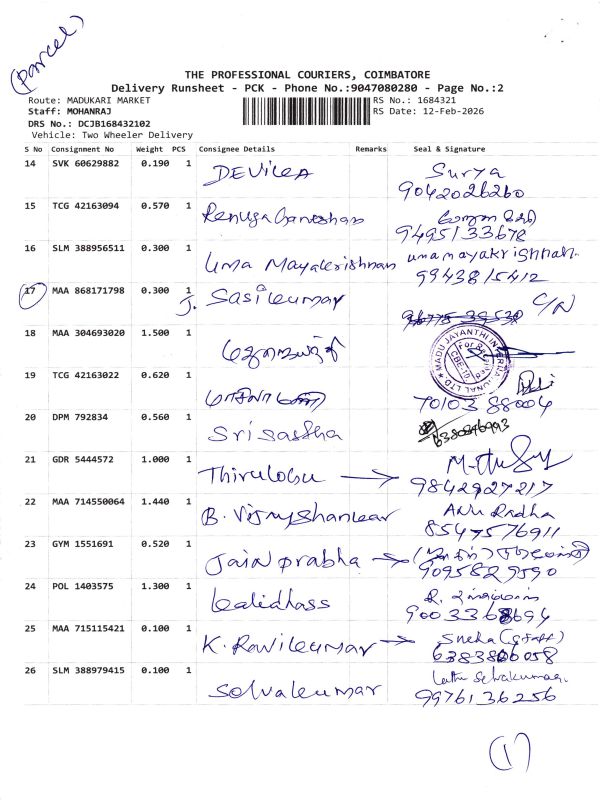 (Parcel)
THE PROFESSIONAL COURIERS, COIMBATORE
Delivery Runsheet - PCK - Phone No.:9047080280 - Page No.:2
Route: MADUKARI MARKET
RS No.: 1684321
Staff: MOHANRAJ
RS Date: 12-Feb-2026
DRS No.: DCJB168432102
Vehicle: Two Wheeler Delivery
S No Consignment No Weight PCS Consignee Details Remarks Seal & Signature
14 SVK 60629882 0.190 1 DEVILEA Surya
9042026260
15 TCG 42163094 0.570 1 Renuga Ganeshan
9495133678
16 SLM 388956511 0.300 1 Uma Mayakrishnan umamayakrishnan
9943815412
17 MAA 868171798 0.300 1 J. Sasikumar C/N
18 MAA 304693020 1.500 1
MADU JAYANTHI INTERNATIONAL LTD
CBE-10
19 TCG 42163022 0.620 1
70103 88004
20 DPM 792834 0.560 1 Sri Sastha
6380896993
21 GDR 5444572 1.000 1 Thirulobu
9842927217
22 MAA 714550064 1.440 1 B. Vijayshankar Anu Radha
8547576911
23 GYM 1551691 0.520 1 Jain prabha
9095829590
24 POL 1403575 1.300 1 Kalidhass
25 MAA 715115421 0.100 1 K. Ravikumar Sneha (staff)
6383806058
26 SLM 388979415 0.100 1 Selvakumar Selvakumar
9976136256
(1)